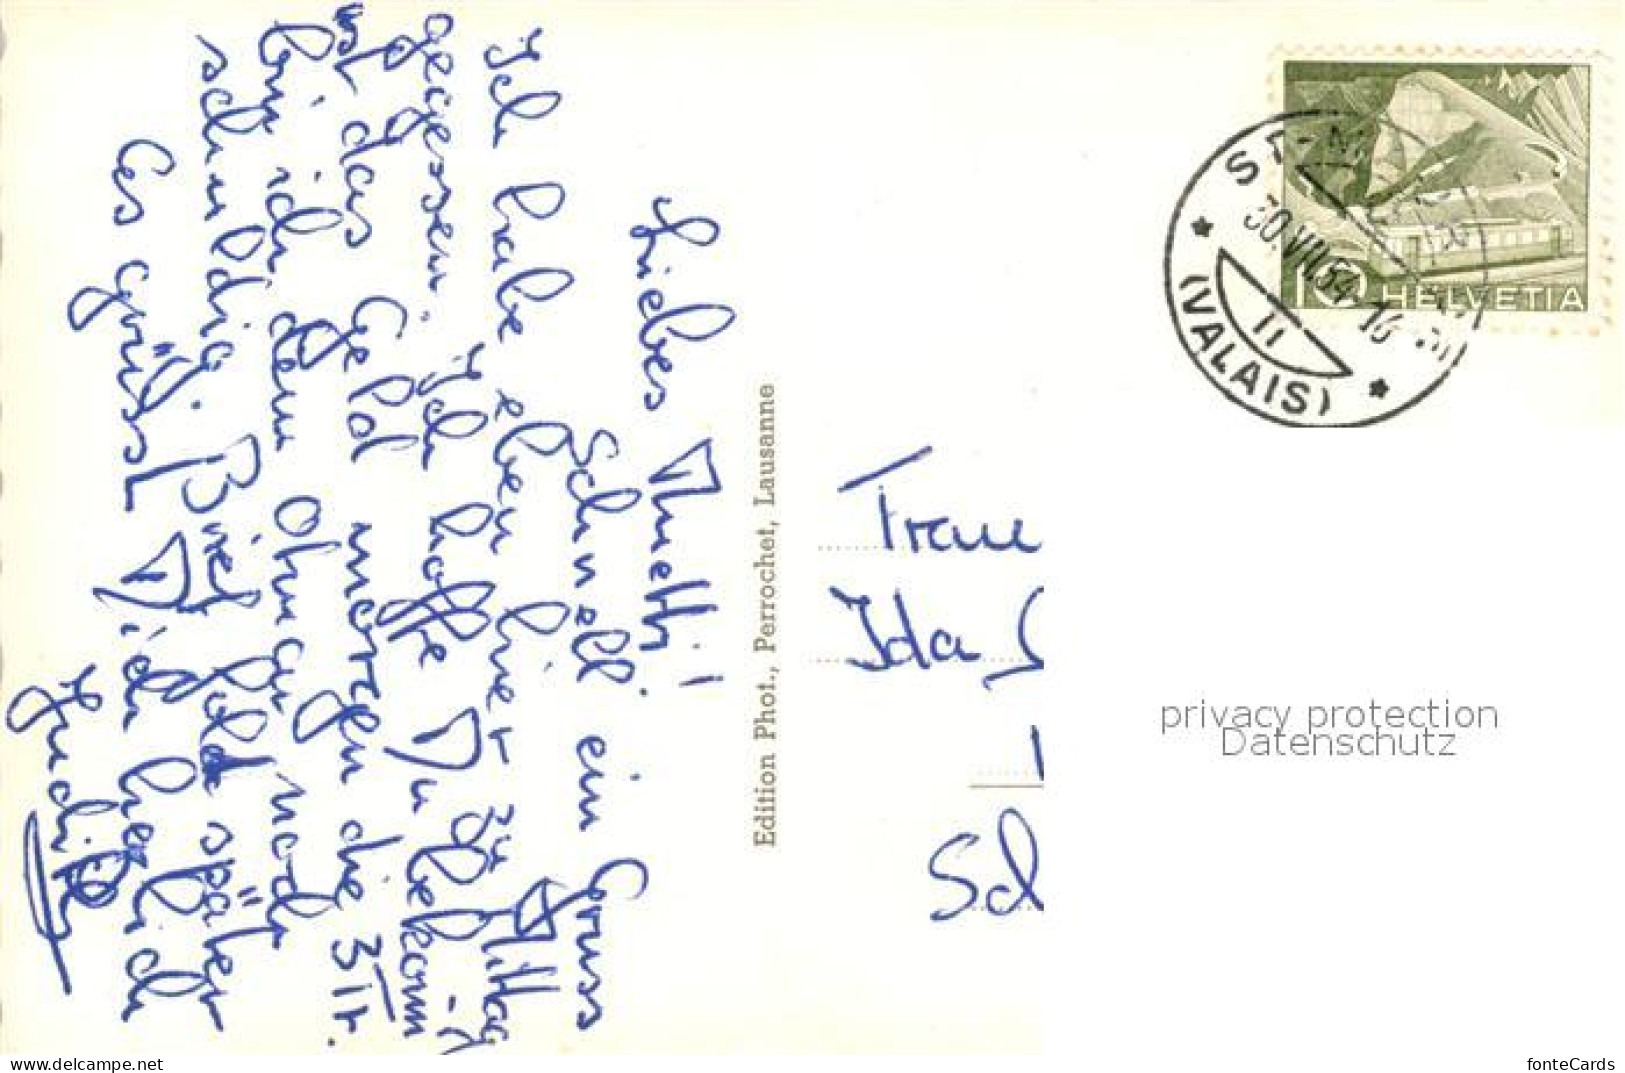 Liebes Muetti!
Schnell ein Gruss
Ich habe eben hier zu Mittag
gegessen. Ich hoffe Du bekommst
das Geld morgen die 3 Fr.
bin ich dem Ohmar noch
schuldig. Brief folgt später
Es grüsst Dich herzlich
Judith
Edition Phot., Perrochet, Lausanne
Frau
Ida
Sch
HELVETIA
10
30.VII.54-16
(VALAIS)
privacy protection
Datenschutz
www.delcampe.net
fonteCards